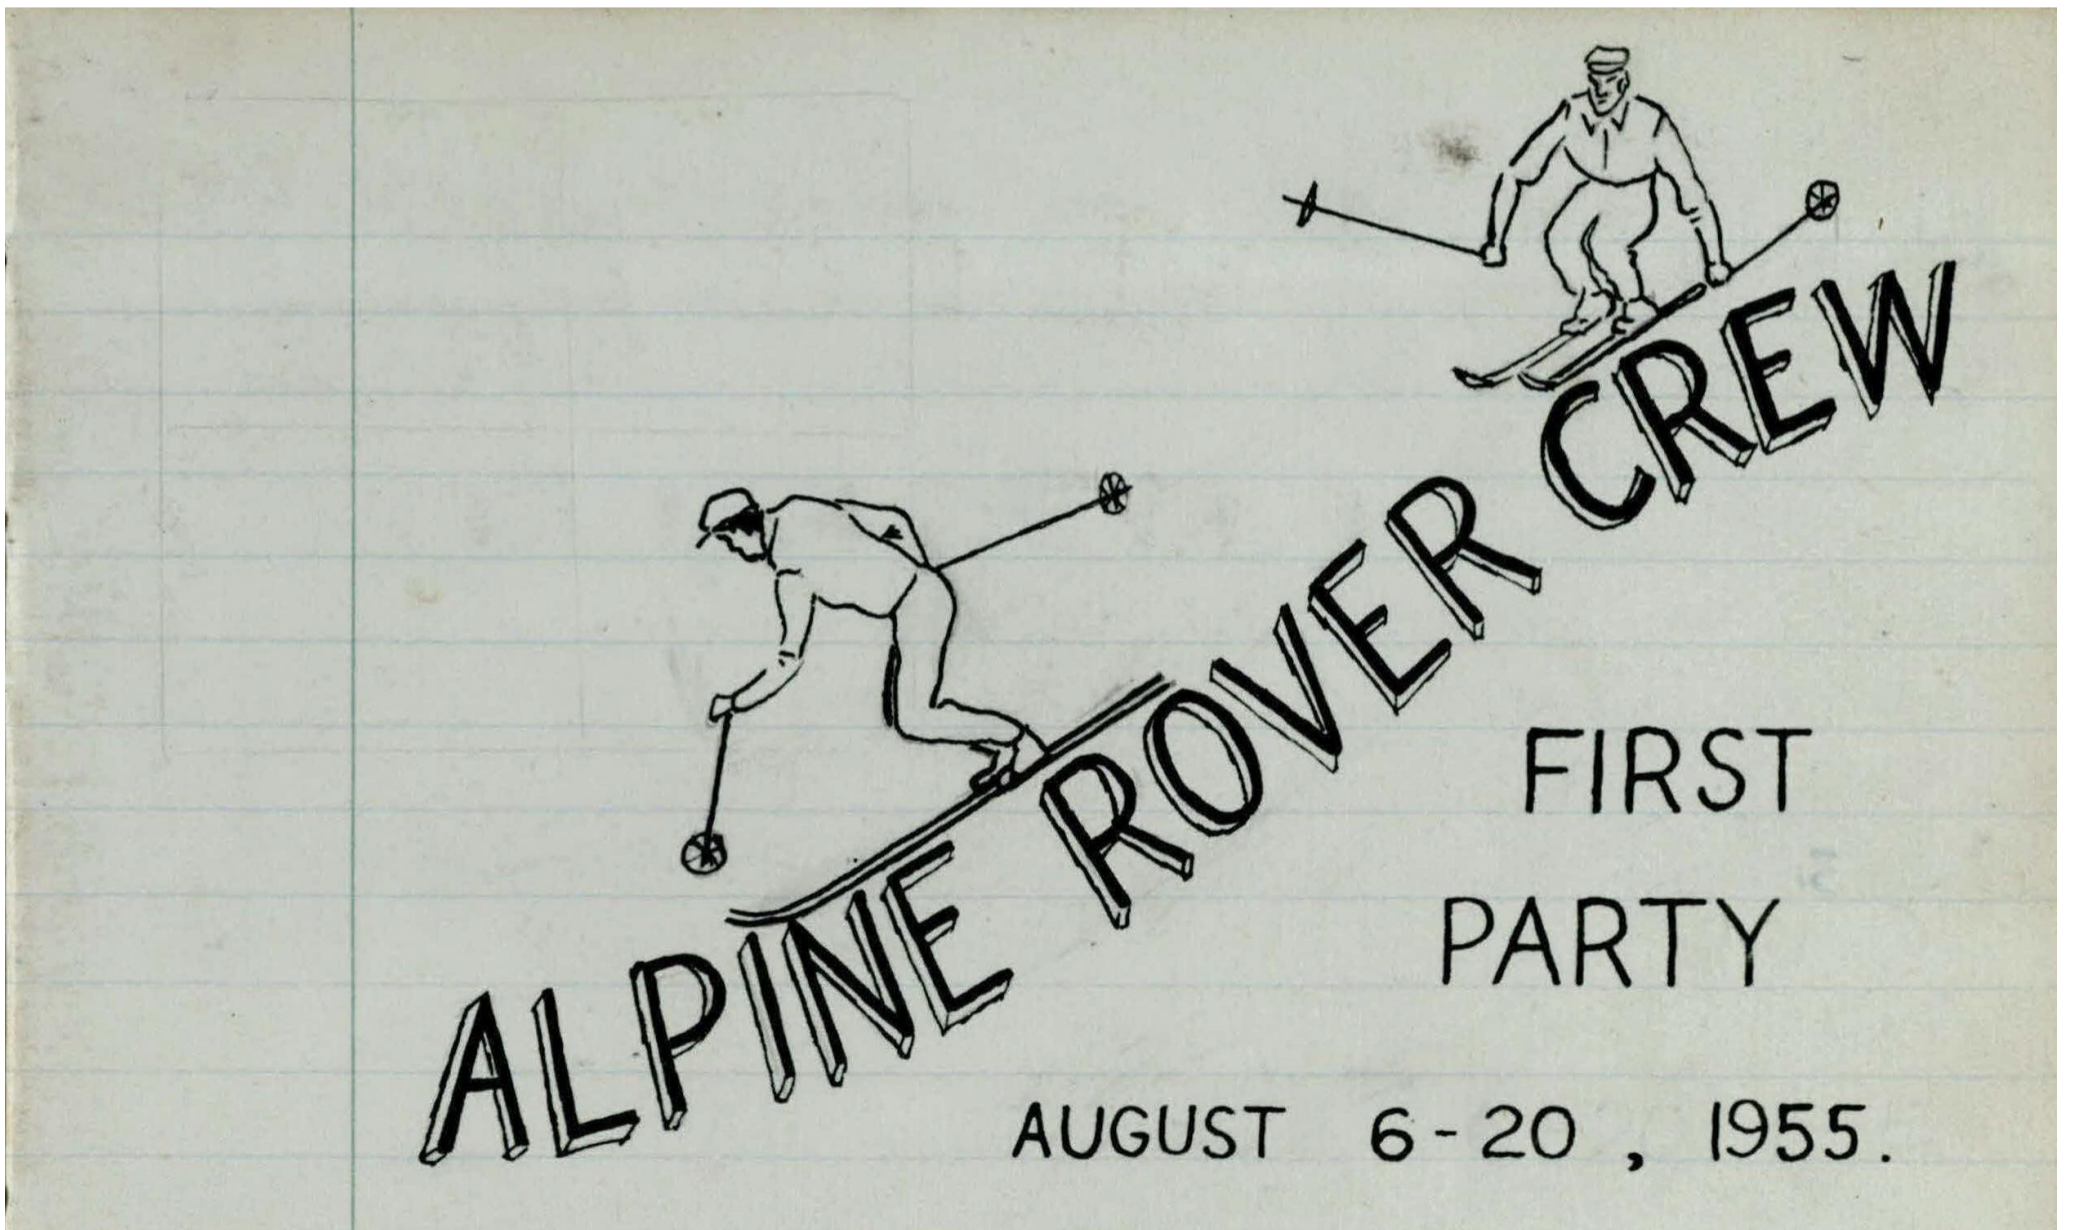 ALPINE ROVER CREW
FIRST
PARTY
AUGUST 6-20, 1955.